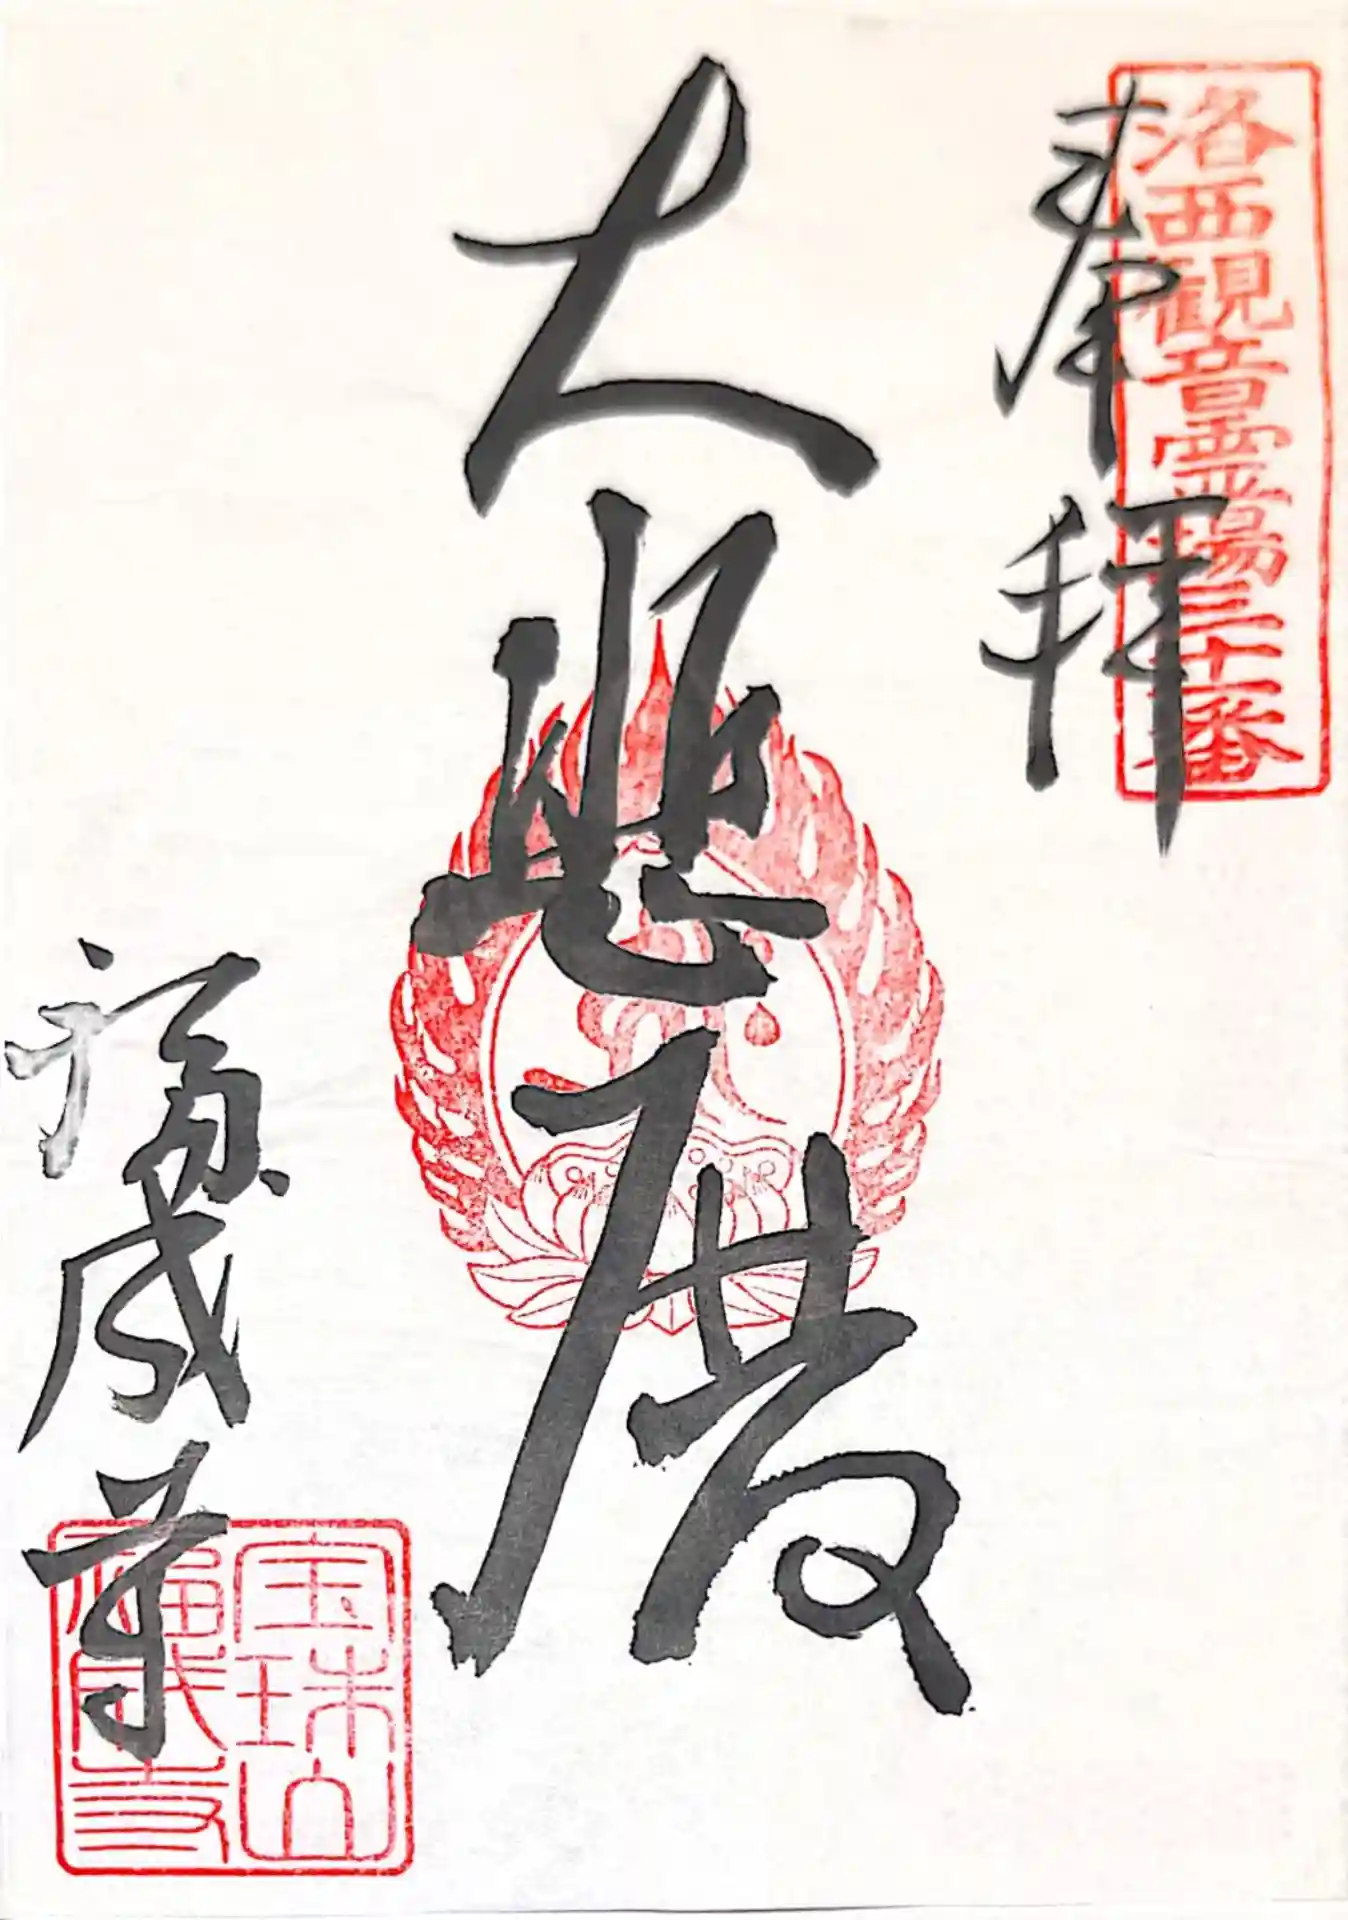 洛西観音霊場三十番
奉拝
大悲殿
福成寺
宝珠山
福成寺